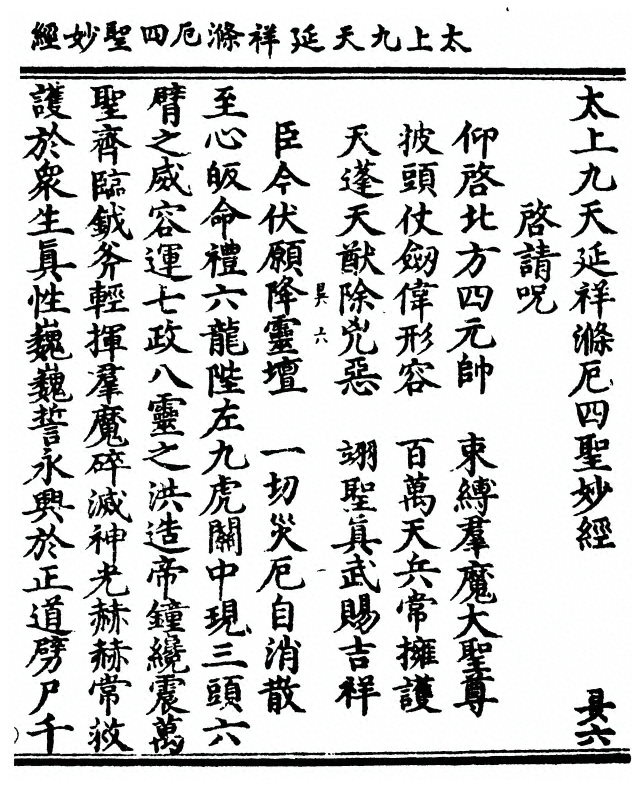 太上九天延祥滌厄四聖妙經
太上九天延祥滌厄四聖妙經
啓請呪
仰啓北方四元帥 束縛羣魔大聖尊
披頭仗劒偉形容 百萬天兵常擁護
天蓬天猷除兇惡 翊聖眞武賜吉祥
臣今伏願降靈壇 一切災厄自消散
至心皈命禮六龍陛左九虎關中現三頭六
臂之威容運七政八靈之洪造帝鐘纔震萬
聖齊臨鉞斧輕揮羣魔碎滅神光赫赫常救
護於衆生眞性巍巍誓永興於正道劈尸千